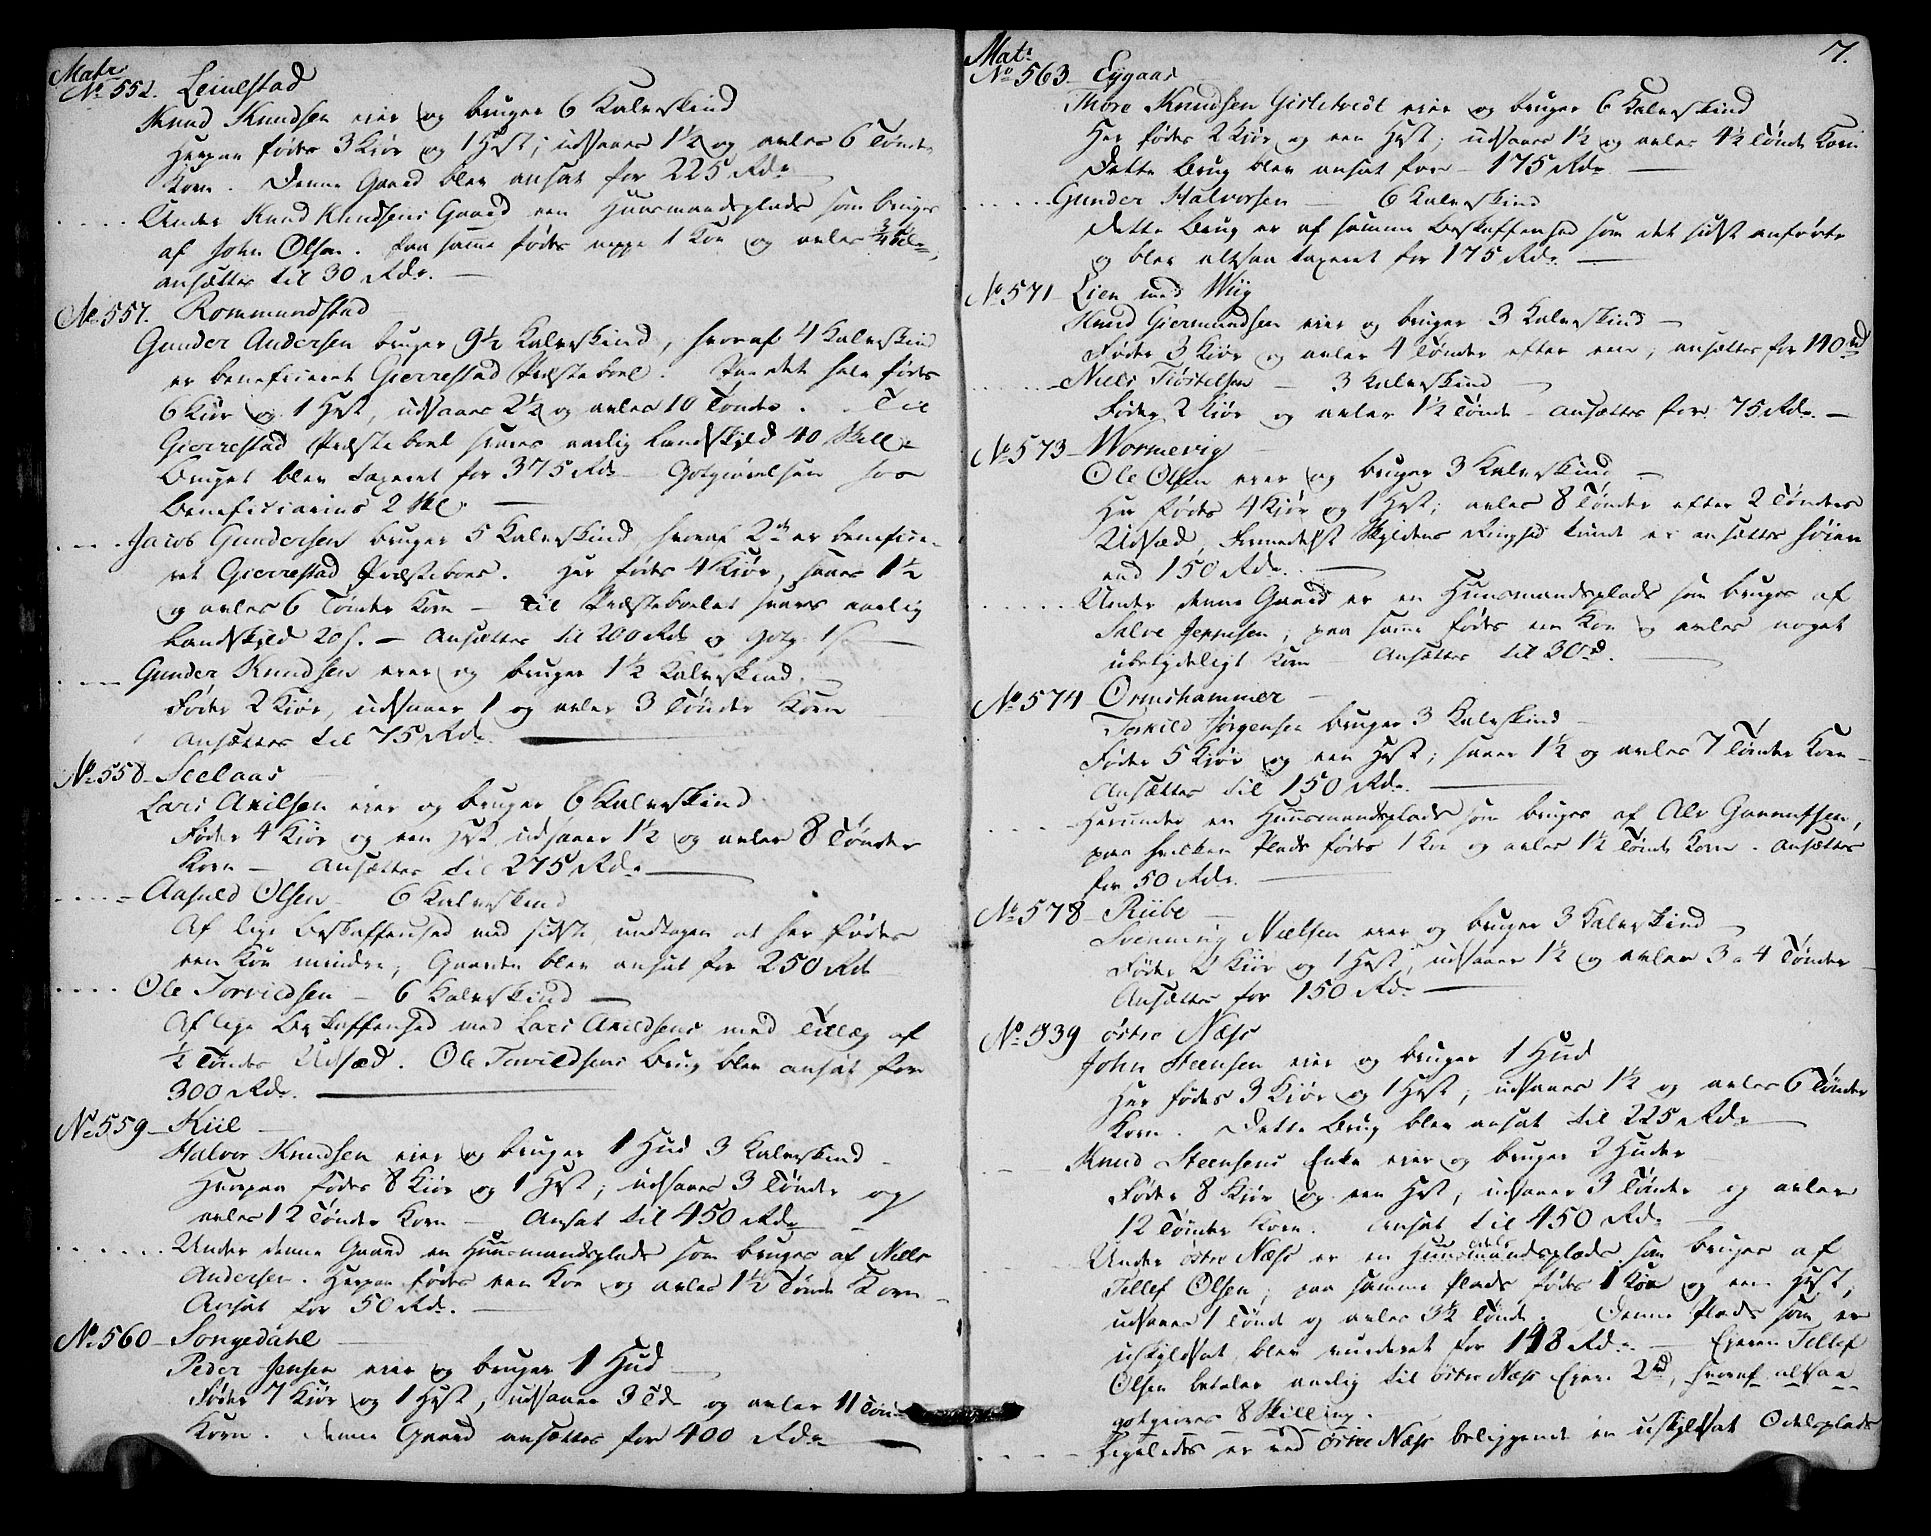 Matr
No 552. Leinestad
Knud Knudsen eier og bruger 6 Kalveskind
Herpaa födes 3 Kiör og 1 Hest; udsaaes 1½ og avles 6 Tönder
Korn. Denne Gaard blev ansat for 225 Rdr
Under Knud Knudsens Gaard een Huusmandsplads som bruges
af John Olsen. Paa samme födes neppe 1 Koe og avles
ansættes til 30 Rdr.
No 557. Rommundstad
Gunder Andersen bruger 9½ Kalveskind, hvoraf 4 Kalveskind
er beneficeret Gierrestad Præsteboel. Paa det hele födes
6 Kiör og 1 Hest, udsaaes 2½ og avles 10 Tönder. Til
Gierrestad Præsteboel svares aarlig Landskyld 40 Skill
Bruget blev taxeret for 375 Rdr Gotgiörelsen hos
Beneficiarius 2 Sk
Jacob Gundersen bruger 5 Kalveskind, hvoraf 2 er benefice-
ret Gierrestad Præsteboel. Her födes 4 Kiör, saaes 1½
og avles 6 Tönder Korn - til Præsteboelet svares aarlig
Landskyld 20 s. - Ansættes til 200 Rdr og gotg. 1 s
Gunder Knudsen eier og bruger 1½ Kalveskind.
Föder 2 Kiör, udsaaer 1 og avler 3 Tönder Korn
Ansættes til 75 Rdr.
No 558 - Seelaas
Lars Axilsen eier og bruger 6 Kalveskind
Föder 4 Kiör og een Hest, udsaaer 1½ og avler 8 Tönder
Korn - Ansættes til 275 Rdr.
Aasuld Olsen - 6 Kalveskind
Af lige Beskaffenhed med sidste, undtagen at her födes
een Koe mindre; Gaarden blev ansat for 250 Rdr
Ole Torvildsen - 6 Kalveskind
Af lige Beskaffenhed med Lars Axildsens med Tillæg af
½ Töndes Udsæd. Ole Torvildsens Brug blev ansat for
300 Rdr.
No 559 - Kiil
Halvor Knudsen eier og bruger 1 Hud 3 Kalveskind
Hvorpaa födes 8 Kiör og 1 Hest; udsaaes 3 Tönder og
avles 12 Tönder Korn - Ansat til 450 Rdr
Under denne Gaard en Huusmandsplads som bruges af Niels
Andersen. Herpaa födes een Koe og avles 1½ Tönde Korn
Ansat for 50 Rdr.
No 560 - Songedahl
Peder Jensen eier og bruger 1 Hud
Föder 7 Kiör og 1 Hest, udsaaer 3 Td. og avler 11 Tön
Korn. Denne Gaard ansættes for 400 Rdr
7.
Matr
No 563 Eygaas
Thore Knudsen Gislehvedt eier og bruger 6 Kalveskind
Her födes 2 Kiör og een Hest; udsaaes 1½ og avles 4½ Tönde Korn
Dette Brug blev ansat for - 175 Rdr
Gunder Halvorsen 6 Kalveskind
Dette Brug er af samme Beskaffenhed som det sidst anförte
og blev altsaa taxeret for 175 Rdr.
No 571 - Lien med Wiig
Knud Giermundsen eier og bruger 3 Kalveskind
Föder 3 Kiör og avler 4 Tönder efter een; ansættes for 140 rd
Niels Tiöstelsen - 3 Kalveskind
Föder 2 Kiör og avler 1½ Tönde - ansættes for 75 Rdr.
No 573 - Wormevig
Ole Olsen eier og bruger 3 Kalveskind
Her födes 4 Kiör og 1 Hest; avles 8 Tönder efter 2 Tönders
Udsæd, Formedelst Skyldens Ringhed kunde ei ansættes höiere
end 150 Rdr.
Under denne Gaard er en Huusmandsplads som bruges af
Salve Jeppesen; paa samme födes een Koe og avles noget
ubetydeligt Korn Ansættes til 30 rd.
No 574 Ormshammer
Torkild Jörgensen bruger 3 Kalveskind
Föder 5 Kiör og een Hest; saaer 1½ og avler 7 Tönder Korn
Ansættes til 150 Rdr.
Herunder en Huusmandsplads som bruges af Alv Gunnufsen,
paa hvilken Plads födes 1 Koe og avles 1½ Tönde Korn. ansættes
for 50 Rdr.
No 578 - Riibe
Svenning Nielsen eier og bruger 3 Kalveskind
Föder 2 Kiör og 1 Hest; udsaaer 1½ og avler 3 a 4 Tönder
Ansættes for 150 Rdr.
No 839 östre Næss
John Steensen eier og bruger 1 Hud
Her födes 3 Kiör og 1 Hest; udsaaes 1½ og avles 6 Tönder
Korn. Dette Brug blev ansat til 225 Rdr
Knud Steensens Enke eier og bruger 2 Huder
Föder 8 Kiör og een Hest, udsaaer 3 Tönder og avler
12 Tönder Korn. Ansat til 450 Rdr.
Under östre Næss er en Huusmandsplads som bruges af
Tellef Olsen; paa samme Plads födes 1 Koe og een Hest,
udsaaes 1 Tönde og avles 3½ Tönde. Denne Plads som er
uskyldsat blev vurderet for 148 Rdr. - Ejeren Tellef
Olsen betaler aarlig til östre Næss Ejere 2 rd, hvoraf altsaa
gotgiöres 8 Skilling.
Ligeledes er ved östre Næss beliggende en uskyldsat Odelsplads